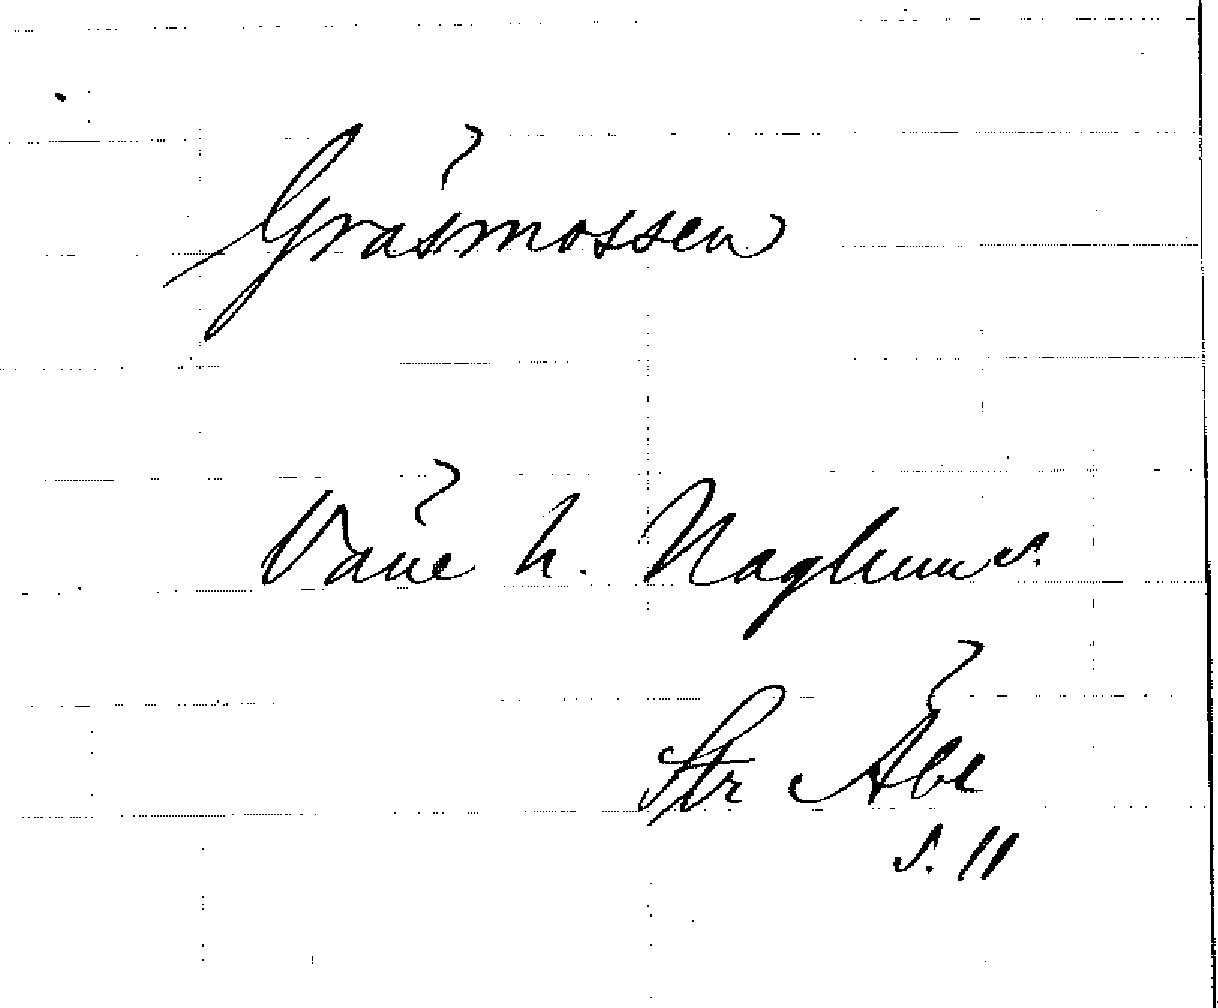 Gräsmossen
Väne h. Naglum s.
Str Äbe
s. 11